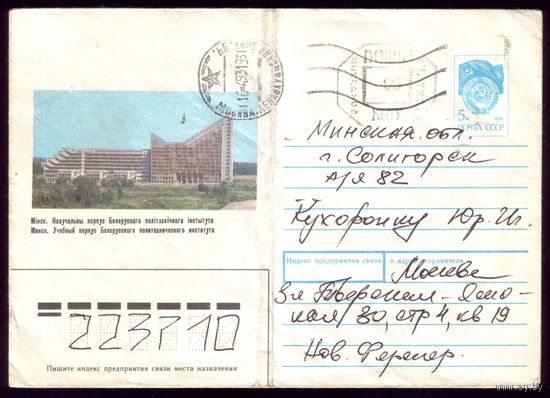 МОСКВА
5к
ПОЧТА СССР
Минская обл.
г. Солигорск
а/я 82
Кухоронку Юр. Иг.
Мінск. Навучальны корпус Беларускага політэхнічнага інстытута
Минск. Учебный корпус Белорусского политехнического института
Индекс предприятия связи и адрес отправителя
Москва
3я Тверская-Ямс-
кая 30, стр 4, кв 19
Нов.
223710
Пишите индекс предприятия связи места назначения